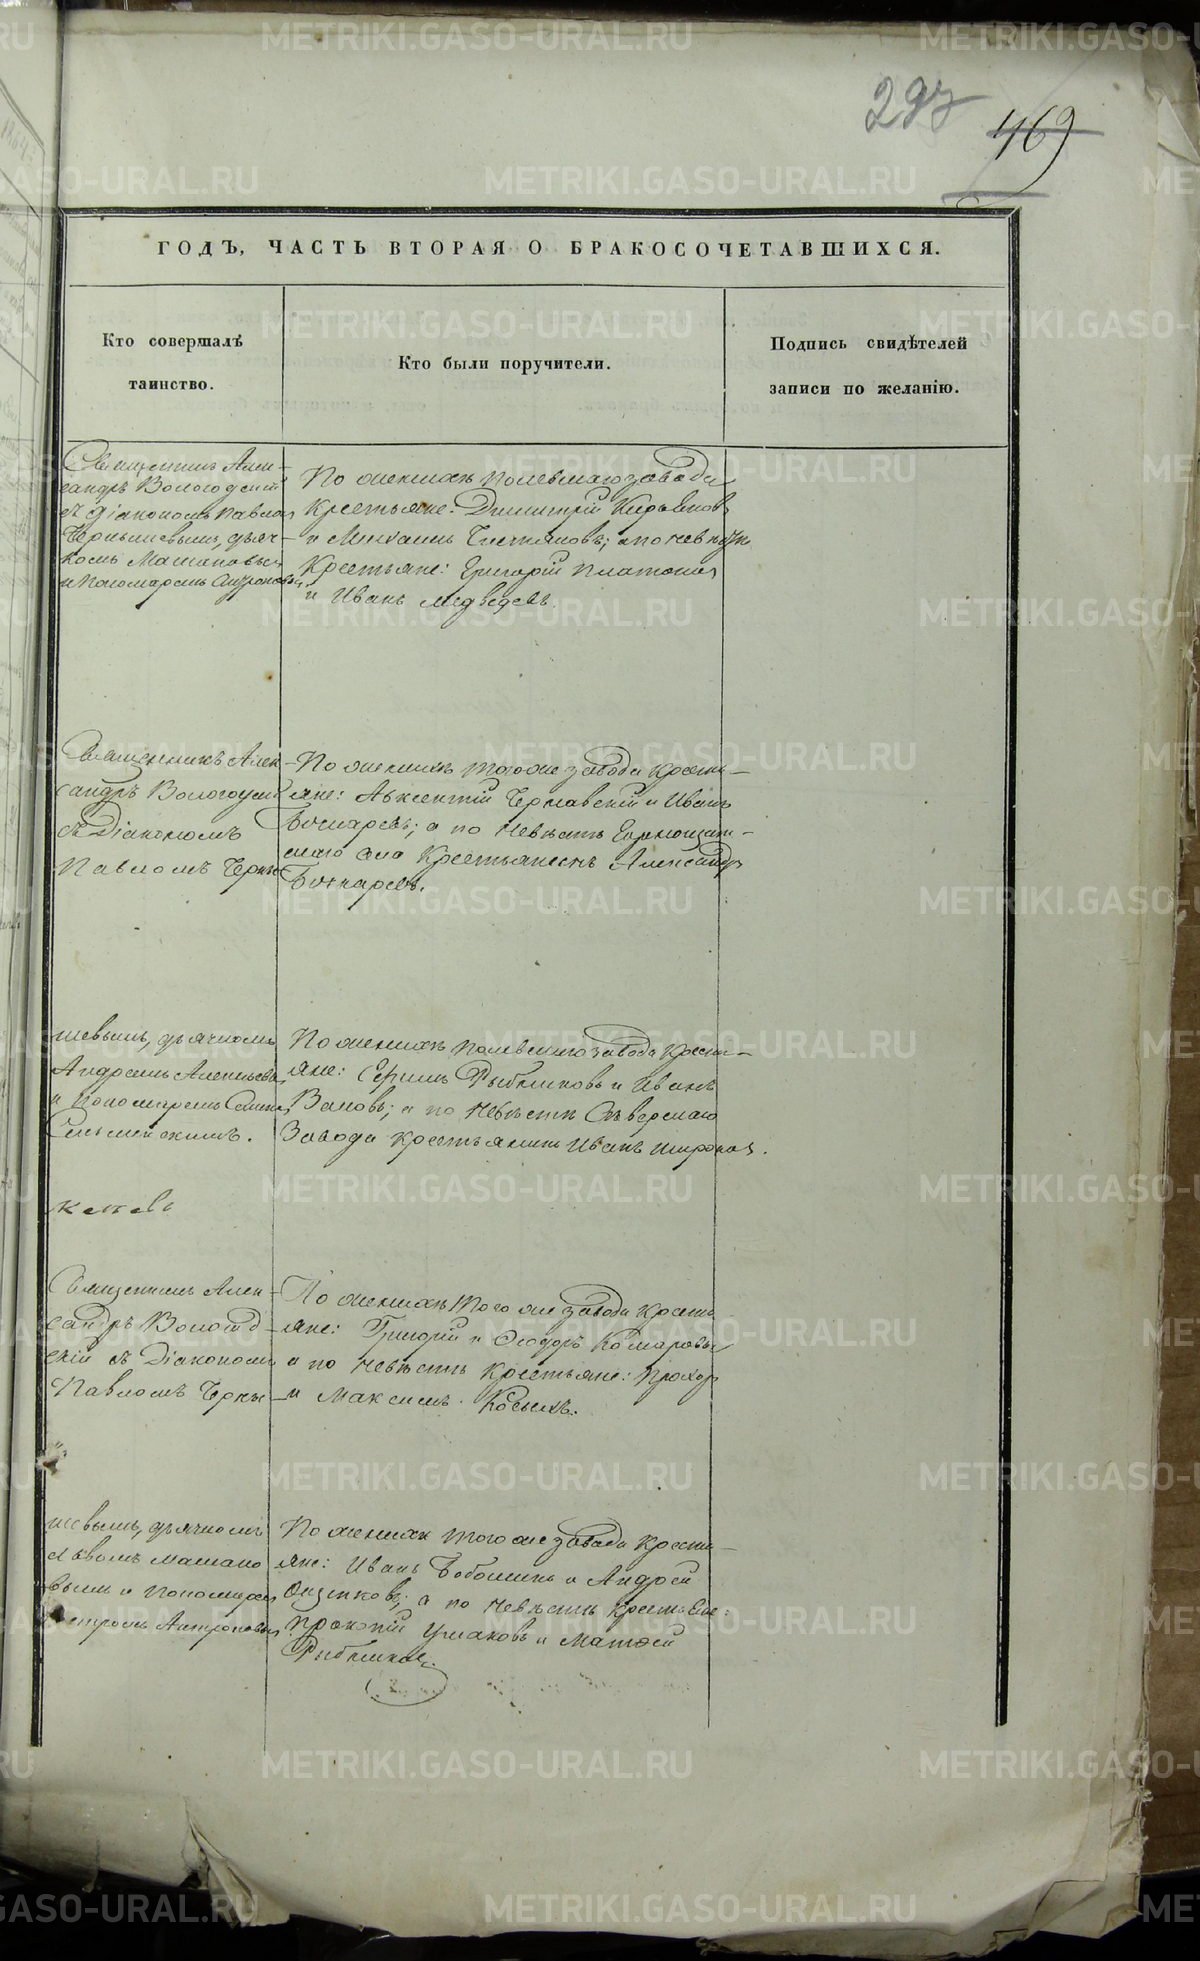 297
469
ГОДЪ, ЧАСТЬ ВТОРАЯ О БРАКОСОЧЕТАВШИХСЯ.
Кто совершалъ
таинство.
Кто были поручители.
Подпись свидѣтелей
записи по желанію.
Священникъ Алек-
сандръ Вологодскій
съ Діакономъ Павлом
Чернышевымъ, дьяч-
комъ
и пономаремъ
По женихѣ Полевскаго завода
Крестьяне: Димитрій Кирьяков
и Михаилъ; а по невѣстѣ
Крестьяне: Григорій Платонов
и Иванъ Медведевъ.
Священникъ Алек-
сандръ Вологодскій
съ Діакономъ
Павломъ Черны
По женихѣ того же завода крестья-
яне: Авксентій Чернавскій и Иванъ
Бочкаревъ; а по невѣстѣ
села Крестьянинъ Александръ
Бочкаревъ.
шевымъ, дьячкомъ
Андреемъ
и пономаремъ
По женихѣ Полевскаго завода крестья-
яне: Ефимъ Рыбниковъ и Иванъ
а по невѣстѣ Сѣверскаго
Завода крестьянинъ Иванъ Широков.
Священникъ Алек-
сандръ Вологод-
скій съ Діакономъ
Павломъ Черны-
По женихѣ того же завода кресть
яне: Григорій и Ѳеодоръ Комаровы
а по невѣстѣ Крестьяне: Прохор
и Максимъ Косыхъ.
шевымъ, дьячкомъ
Львомъ
вымъ и пономарем
По женихѣ того же завода крестья-
яне: Иванъ и Андрей
а по невѣстѣ крестьяне:
Прокопій Ушаковъ и Матѳей
Рыбников.